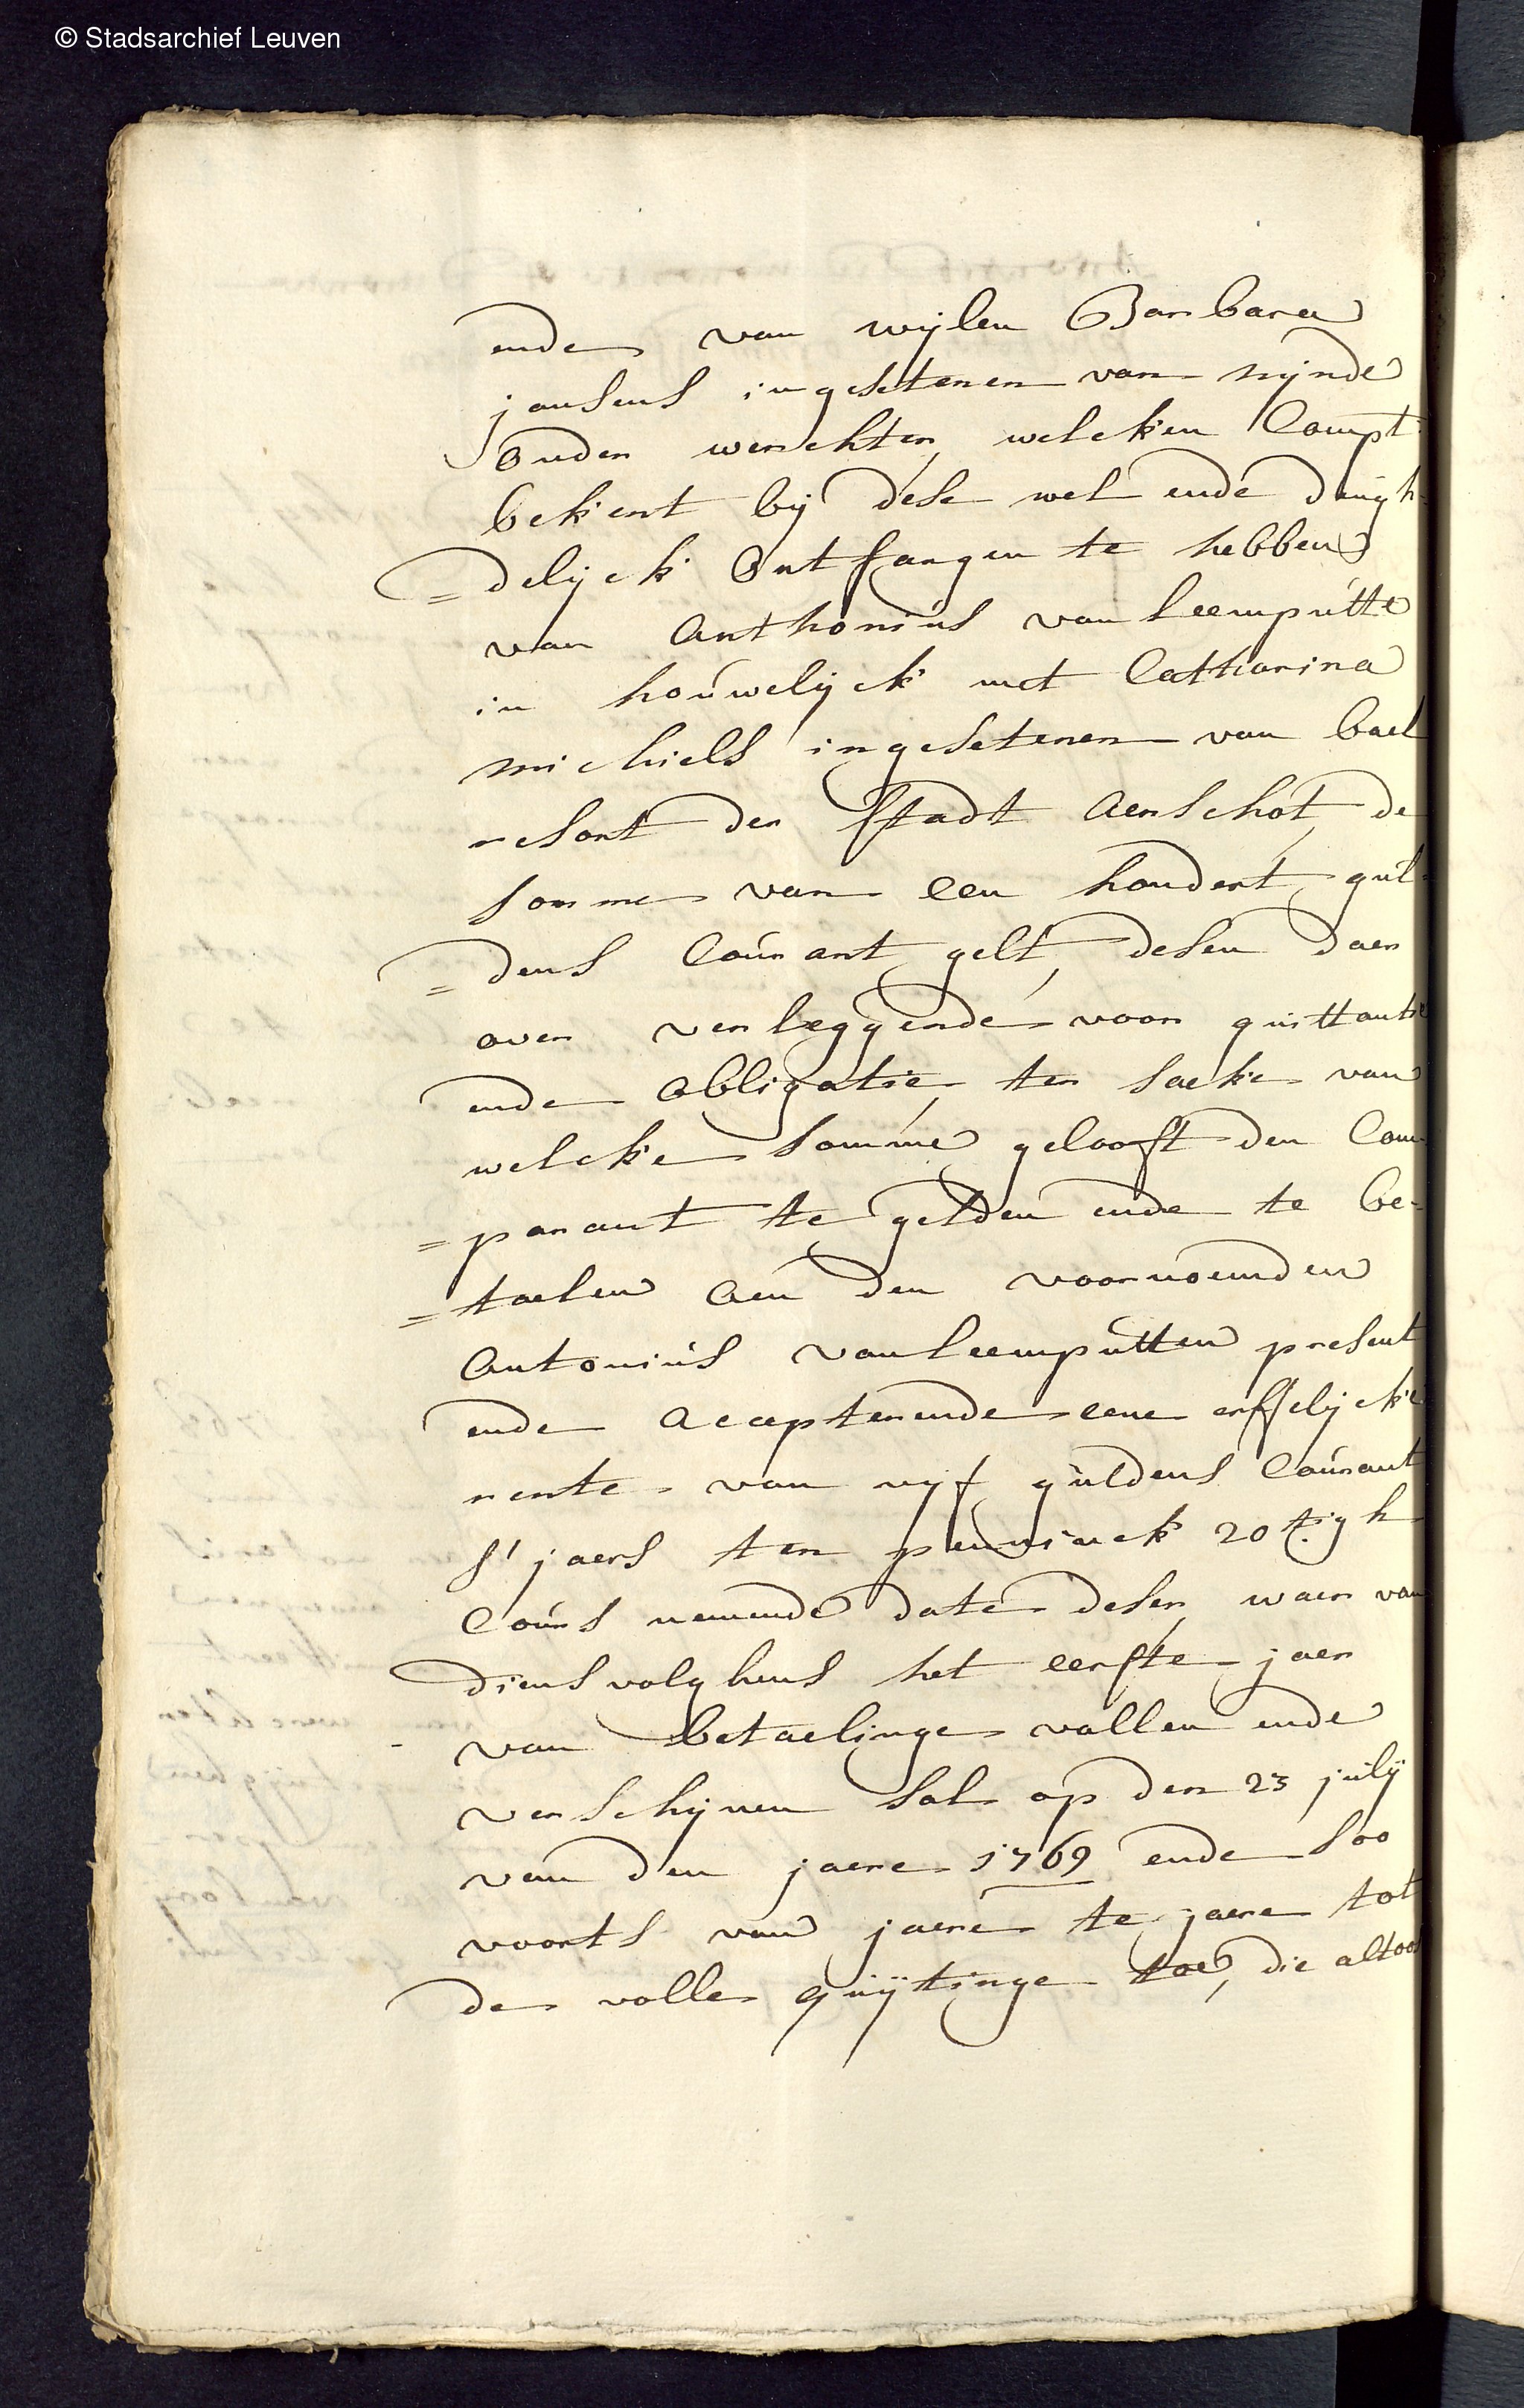 © Stadsarchief Leuven
ende van wijlen Barbara
jansens ingesetenen van nijnde
onder werchter, welcken Compt
bekent bij dese wel ende deúgh
=delijck ontfangen te hebben
van Anthoniús van leempútte
in hoúwelijck met Catharina
michiels ingesetenen van bael
resort der stadt Aerschot, de
somme van een hondert gúl
=dens Coúrant gelt, desen daer
over verleggende voor quittantie
ende obligatie, ter saeke van
welcke somme gelooft den Com
=parant te gelden ende te be=
=taelen aen den voornoemden
Antoniús van leempútten present
ende accepterende eene erffelijcke
rente van vijf gúldens Coúrant
s'jaers ten penninck 20tigh
Coúrs nemende date deser, waer van
diensvolghens het eerste jaer
van betaelinge vallen ende
verschijnen sal op den 23 júlij
van den jaere 1769 ende soo
voorts van jaere te jaere tot
de volle quijtinge toe, die altoos